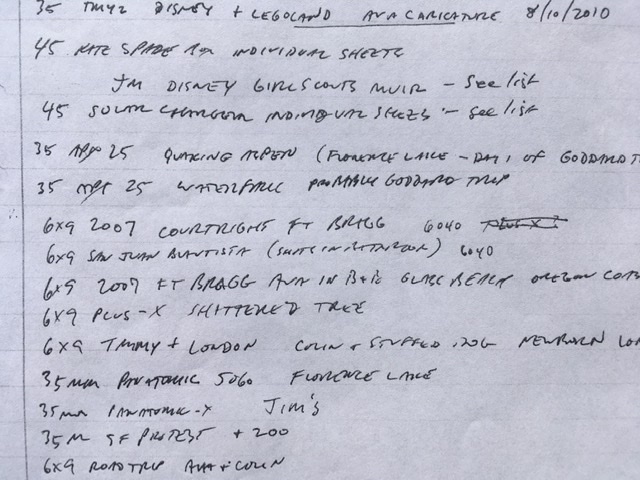 35 TMY2 DISNEY + LEGOLAND AVA CARICATURE 8/10/2010
45 KATE SPADE INDIVIDUAL SHEETS
JM DISNEY GIRL SCOUTS MUIR - See list
45 SOLAR CHARGER INDIVIDUAL SHEETS - See list
35 APX 25 QUAKING ASPEN (FLORENCE LAKE - DAY 1 OF GODDARD T
35 APX 25 WATERFALL PROBABLY GODDARD TRIP
6x9 2007 COURTRIGHT FT BRAGG 6040 PLUS-X
6x9 SAN JUAN BAUTISTA ( 6040
6x9 2007 FT BRAGG AVA IN B+B GLASS BEACH OREGON COAS
6x9 PLUS-X SHATTERED TREE
6x9 TMMY + LONDON COLIN + STUFFED DOG NEWBORN LON
35mm PANATOMIC 5060 FLORENCE LAKE
35mm PANATOMIC-X JIM'S
35M SF PROTEST + 200
6x9 ROADTRIP AVA + COLIN